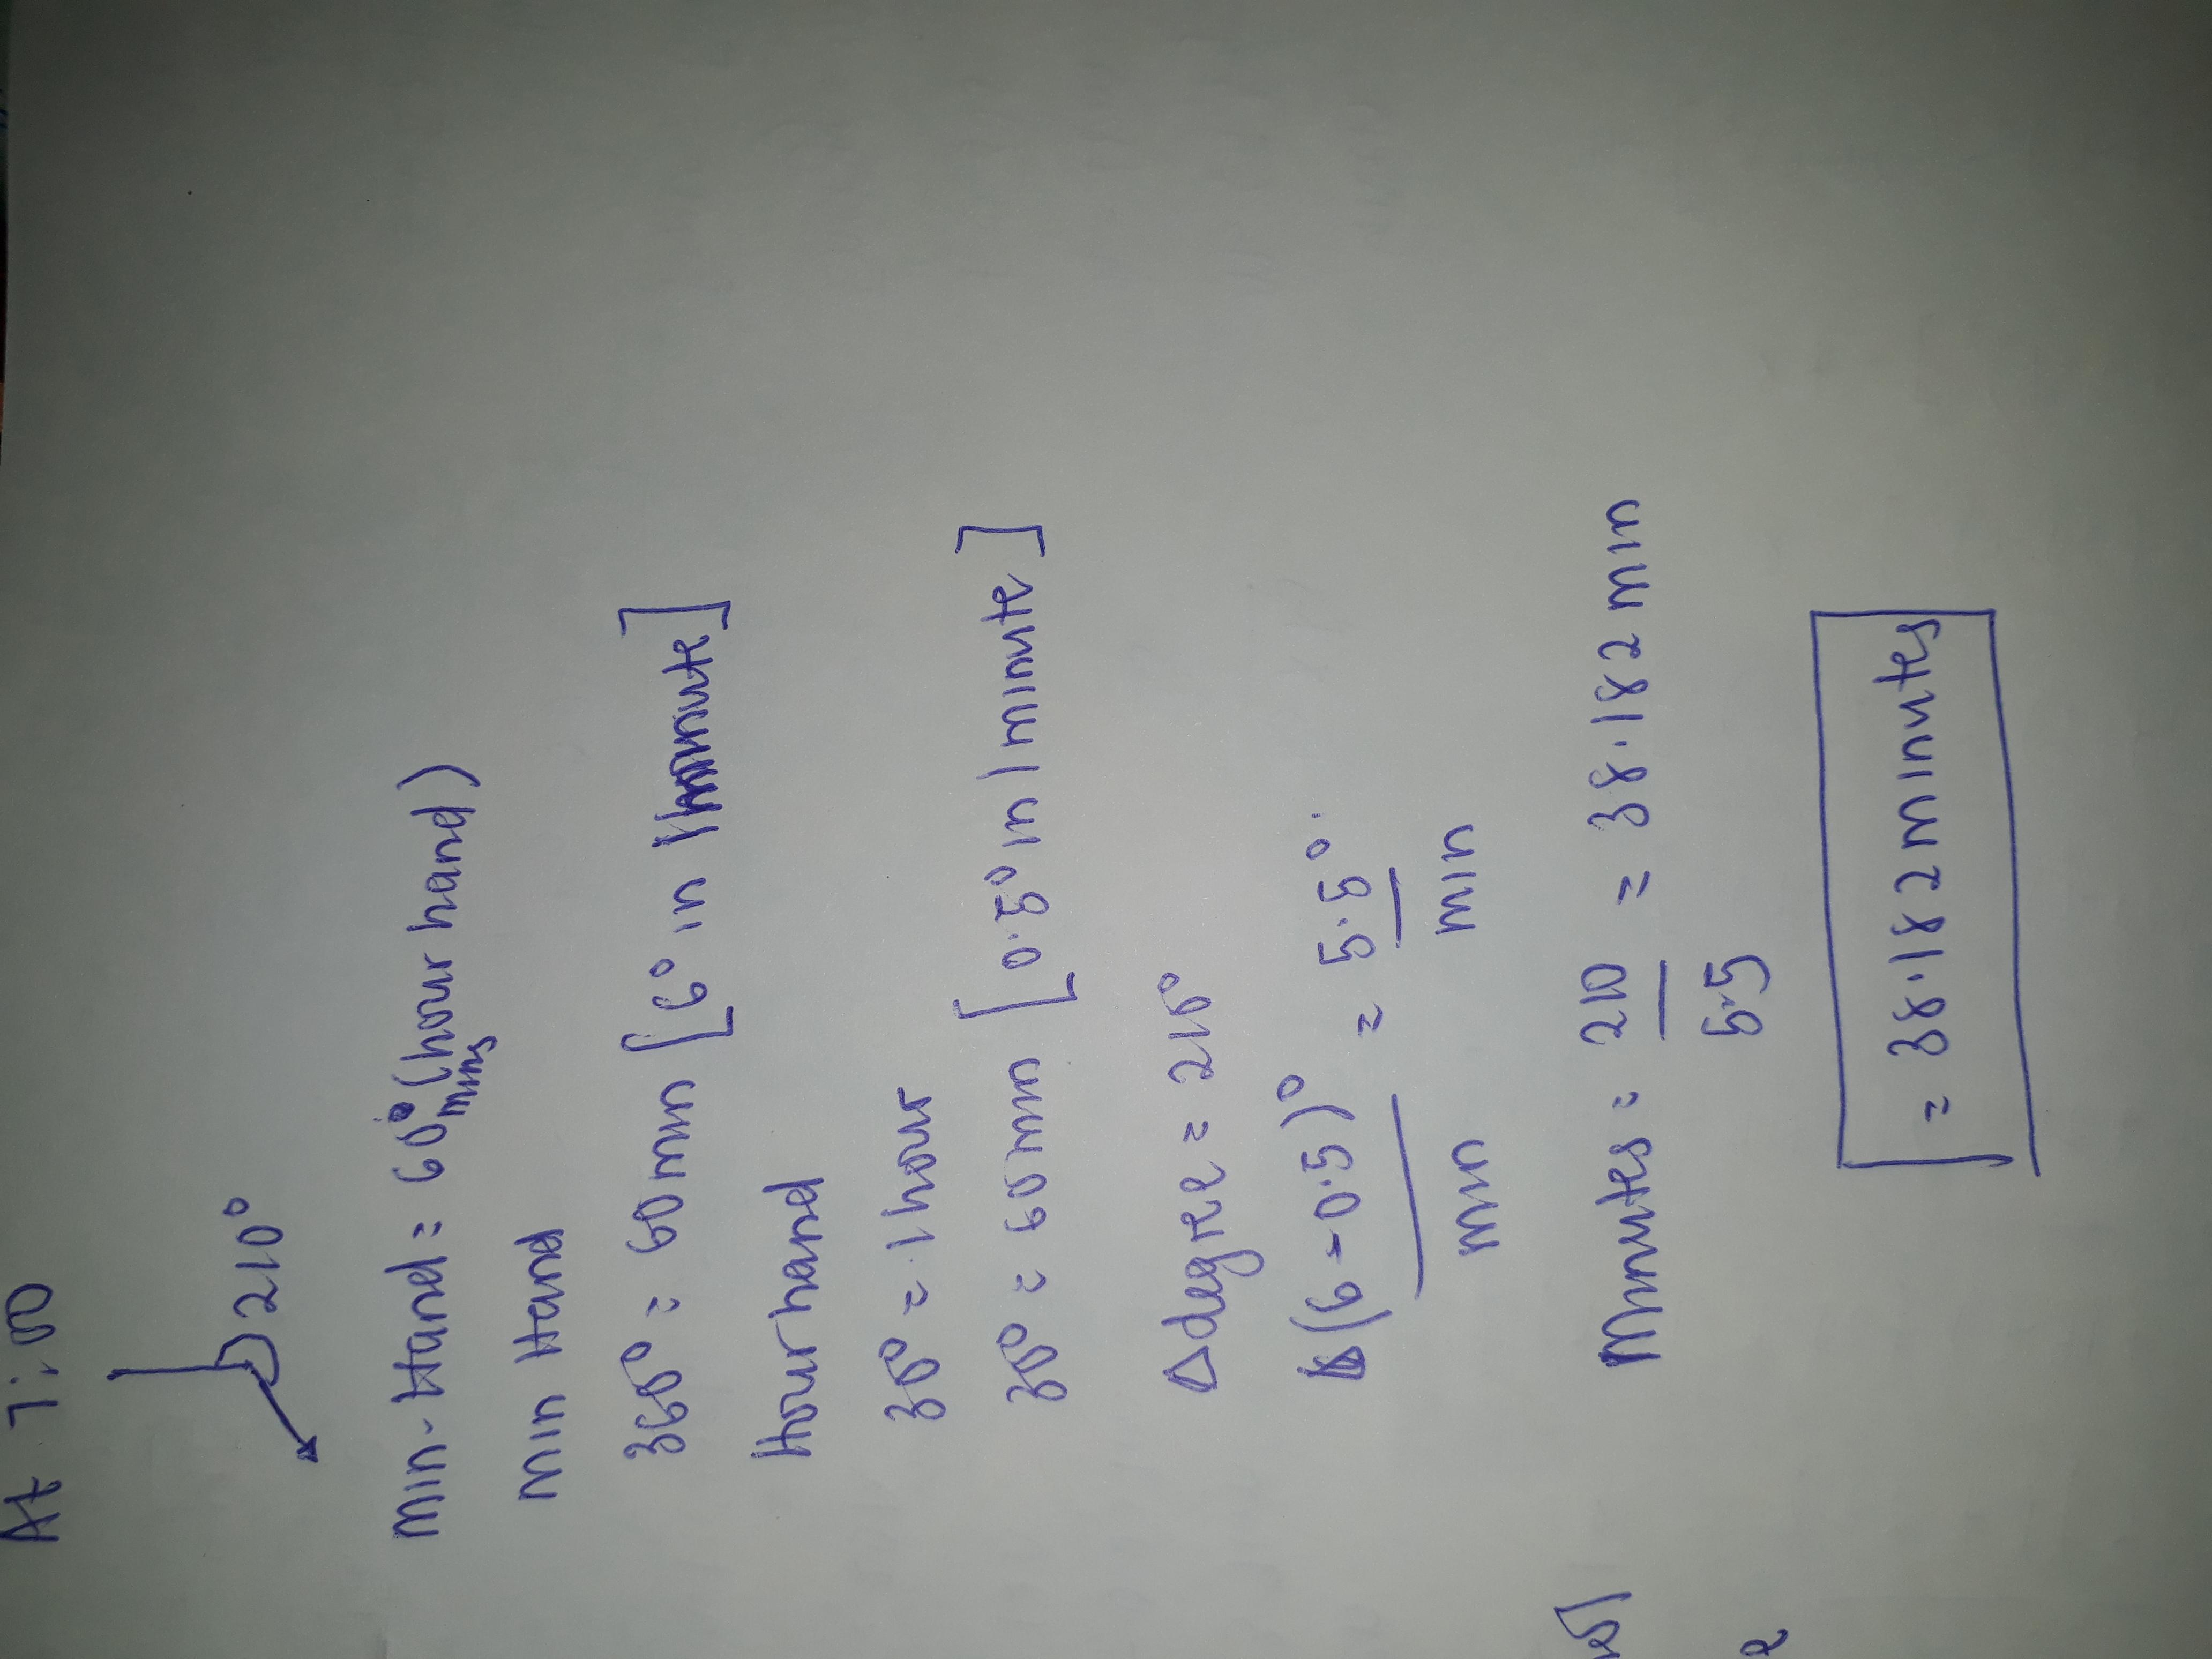 At 7:00
210°
Min-Hand = 60 mins (hour hand)
Min Hand
360° = 60min [6° in 1 minute]
Hour hand
30° = 1 hour
30° = 60min [0.5° in 1 minute]
Δdegree = 210°
Δ(6-0.5)° = 5.5°.
min min
Minutes = 210 = 38.182 min
5.5
= 38.182 minutes